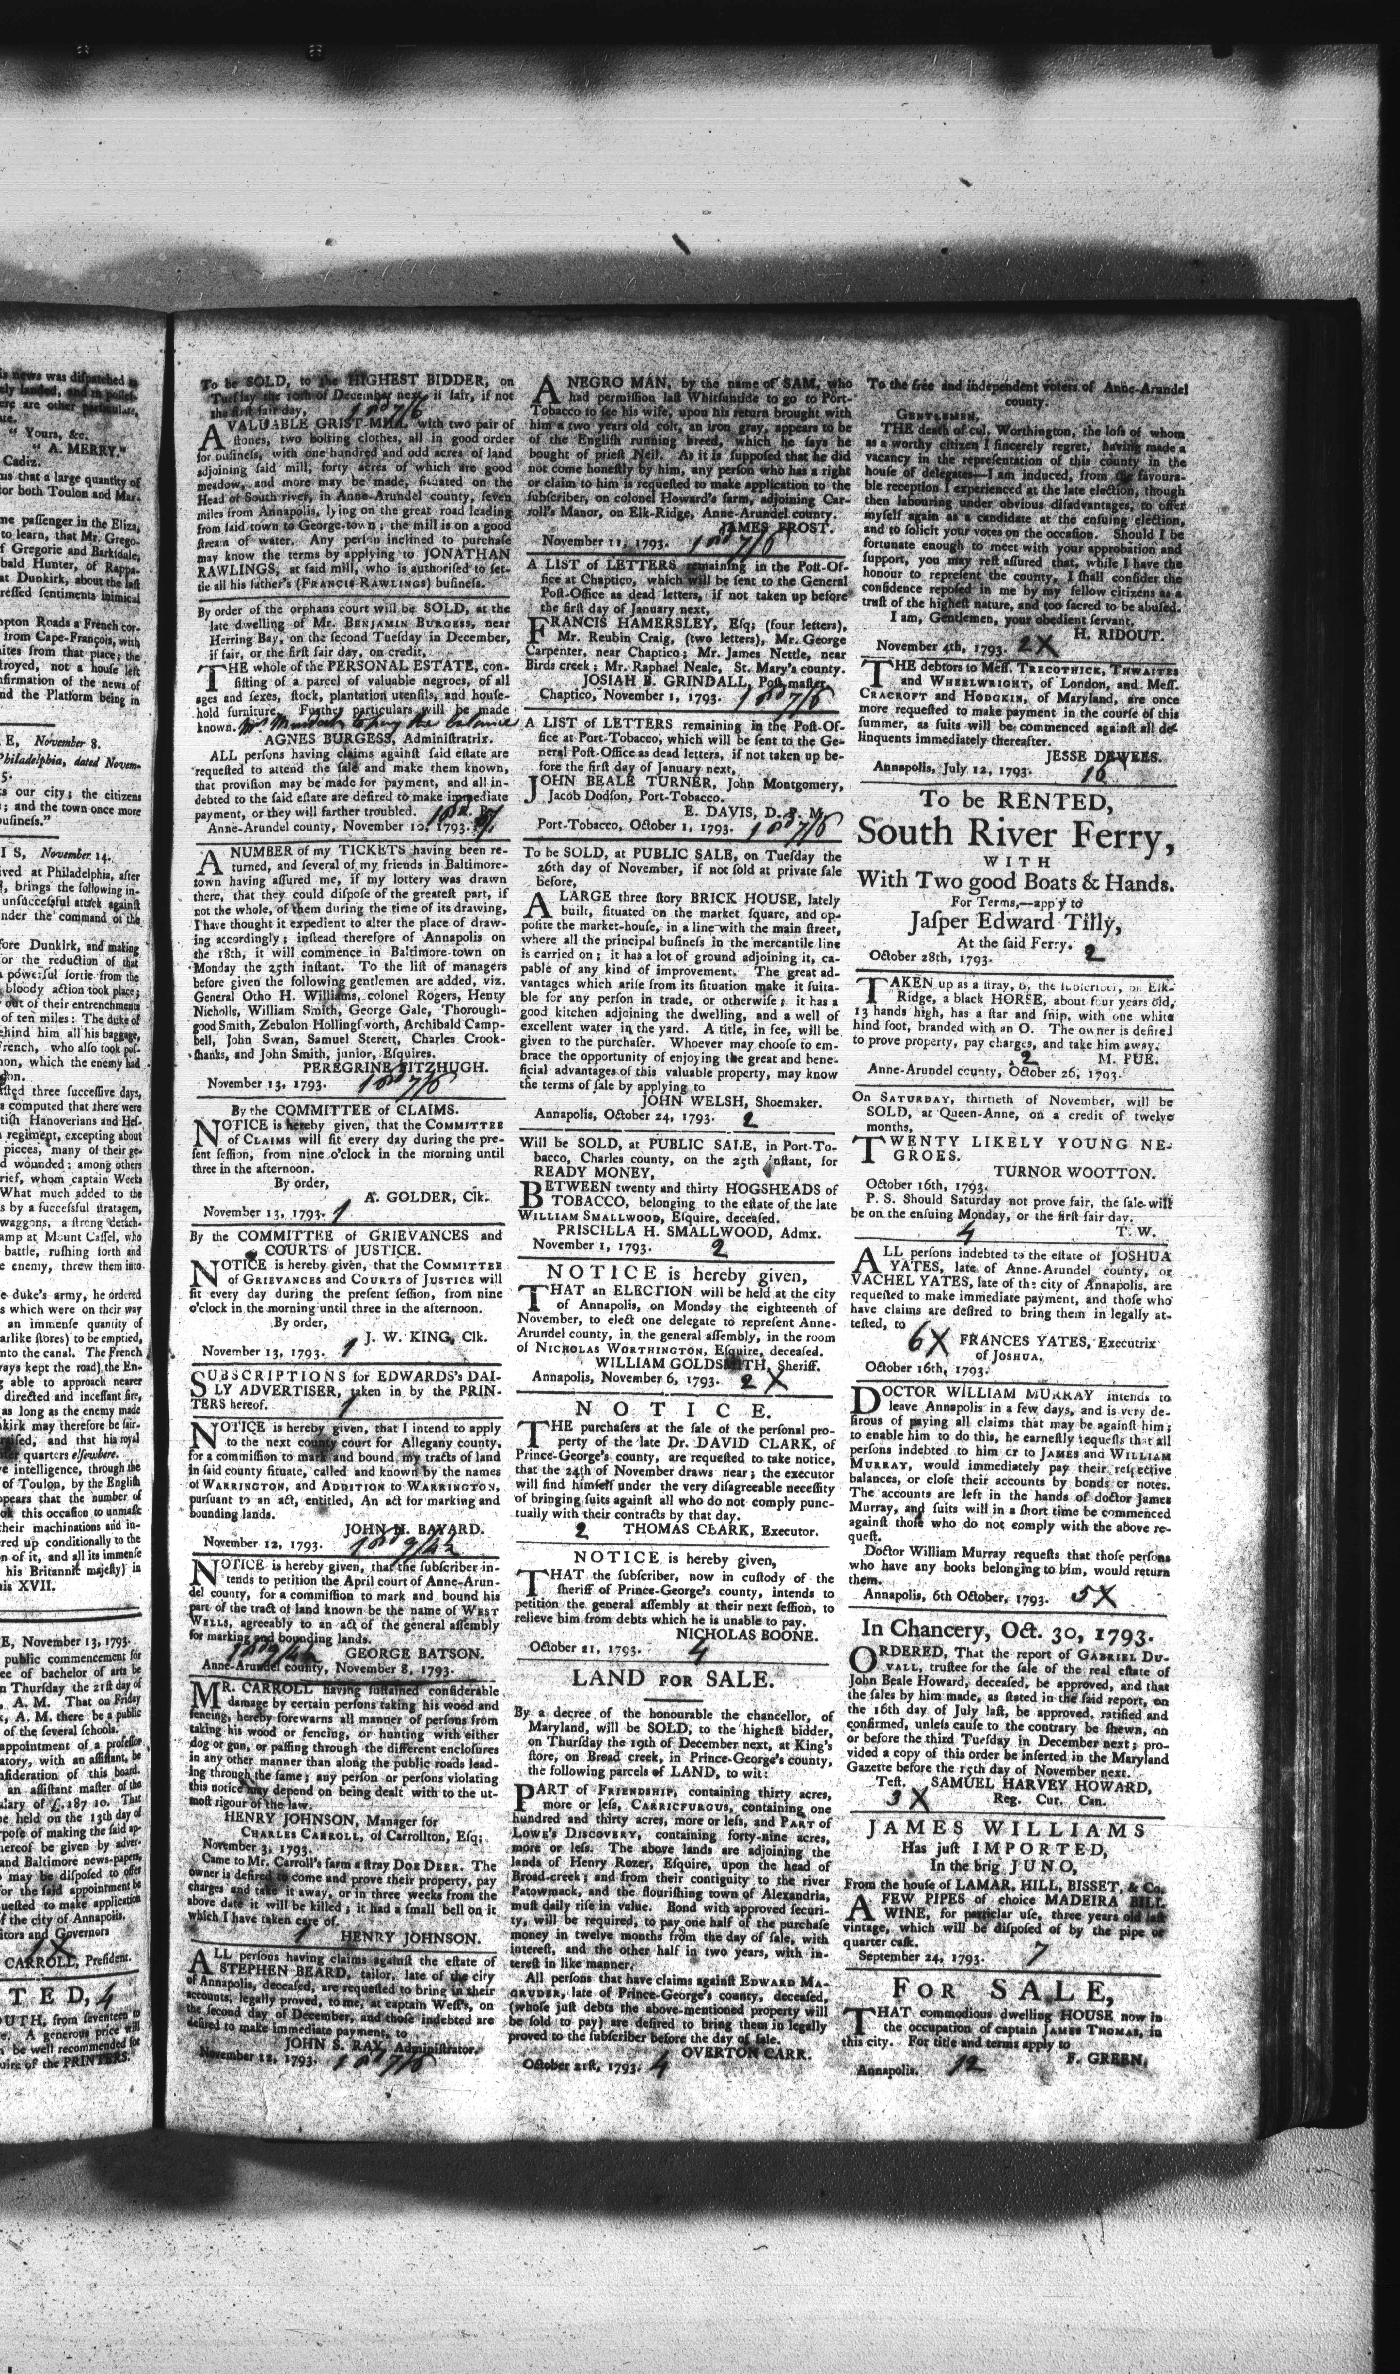 is news was dispatched
ere are other particulars,
" Yours, &c.
" A. MERRY."
Cadiz.
us that a large quantity of
tor both Toulon and Mar-
me passenger in the Eliza,
to learn, that Mr. Grego-
f Gregorie and Barkſdale,
bald Hunter, of Rappa-
at Dunkirk, about the laſt
reſſed ſentiments inimical
mpton Roads a French cor-
from Cape-François, with
ites from that place; the
troyed, not a houſe left
nfirmation of the news of
nd the Platform being in
E, November 8.
Philadelphia, dated Novem-
5.
s our city; the citizens
; and the town once more
uſineſs."
I S, November 14.
ived at Philadelphia, after
, brings the following in-
unſucceſsful attack againſt
nder the command of the
fore Dunkirk, and making
or the reduction of that
a powerful ſortie from the
bloody action took place;
out of their entrenchments
of ten miles: The duke of
ehind him all his baggage,
French, who alſo took poſ-
non, which the enemy had
ſted three ſucceſſive days,
s computed that there were
tiſh Hanoverians and Heſ-
regiment, excepting about
pieces, many of their ge-
d wounded; among others
rief, whom captain Weeks
What much added to the
s by a ſucceſsful ſtratagem,
waggons, a ſtrong detach-
amp at Mount Caſſel, who
battle, ruſhing forth and
e enemy, threw them into
e duke's army, he ordered
s which were on their way
an immenſe quantity of
arlike ſtores) to be emptied,
nto the canal. The French
ways kept the road) the En-
g able to approach nearer
directed and inceſſant fire,
as long as the enemy made
nkirk may therefore be fair-
uſed, and that his royal
ter quarters elſewhere.
ve intelligence, through the
of Toulon, by the Engliſh
ppears that the number of
ok this occaſion to unmaſk
heir machinations and in-
red up conditionally to the
n of it, and all its immenſe
his Britannic majeſty) in
is XVII.
E, November 13, 1793.
public commencement for
ee of bachelor of arts be
n Thurſday the 21ſt day of
, A. M. That on Friday
k, A. M. there be a public
of the ſeveral ſchools.
appointment of a profeſſor
atory, with an aſſiſtant, be
nſideration of this board.
an aſſiſtant maſter of the
alary of £.187 10. That
be held on the 13th day of
rpoſe of making the ſaid ap-
hereof be given by adver-
and Baltimore news-papers,
may be diſpoſed to offer
or the ſaid appointment be
ueſted to make application
f the city of Annapolis,
itors and Governors
1X
CARROLL, Preſident.
T E D, 4
OUTH, from ſeventeen to
e. A generous price will
be well recommended for
uire of the PRINTERS.
To be SOLD, to the HIGHEST BIDDER, on
Tueſday the 10th of December next, if fair, if not
the firſt fair day,
A VALUABLE GRIST-MILL with two pair of
ſtones, two bolting clothes, all in good order
for buſineſs, with one hundred and odd acres of land
adjoining ſaid mill, forty acres of which are good
meadow, and more may be made, ſituated on the
Head of South river, in Anne-Arundel county, ſeven
miles from Annapolis, lying on the great road leading
from ſaid town to George-town; the mill is on a good
ſtream of water. Any perſon inclined to purchaſe
may know the terms by applying to JONATHAN
RAWLINGS, at ſaid mill, who is authoriſed to ſet-
tle all his father's (FRANCIS RAWLINGS) buſineſs.
By order of the orphans court will be SOLD, at the
late dwelling of Mr. BENJAMIN BURGESS, near
Herring Bay, on the ſecond Tueſday in December,
if fair, or the firſt fair day, on credit,
THE whole of the PERSONAL ESTATE, con-
ſiſting of a parcel of valuable negroes, of all
ages and ſexes, ſtock, plantation utenſils, and houſe-
hold furniture. Further particulars will be made
known. to pay the balance
AGNES BURGESS, Adminiſtratrix.
ALL perſons having claims againſt ſaid eſtate are
requeſted to attend the ſale and make them known,
that proviſion may be made for payment, and all in-
debted to the ſaid eſtate are deſired to make immediate
payment, or they will farther troubled.
Anne-Arundel county, November 10, 1793.
A NUMBER of my TICKETS having been re-
turned, and ſeveral of my friends in Baltimore-
town having aſſured me, if my lottery was drawn
there, that they could diſpoſe of the greateſt part, if
not the whole, of them during the time of its drawing,
I have thought it expedient to alter the place of draw-
ing accordingly; inſtead therefore of Annapolis on
the 18th, it will commence in Baltimore-town on
Monday the 25th inſtant. To the liſt of managers
before given the following gentlemen are added, viz.
General Otho H. Williams, colonel Rogers, Henry
Nicholls, William Smith, George Gale, Thorough-
good Smith, Zebulon Hollingſworth, Archibald Camp-
bell, John Swan, Samuel Sterett, Charles Crook-
ſhanks, and John Smith, junior, Eſquires.
PEREGRINE FITZHUGH.
November 13, 1793.
By the COMMITTEE of CLAIMS.
NOTICE is hereby given, that the COMMITTEE
of CLAIMS will ſit every day during the pre-
ſent ſeſſion, from nine o'clock in the morning until
three in the afternoon.
By order,
A. GOLDER, Clk.
November 13, 1793. 1
By the COMMITTEE of GRIEVANCES and
COURTS of JUSTICE.
NOTICE is hereby given, that the COMMITTEE
of GRIEVANCES and COURTS of JUSTICE will
ſit every day during the preſent ſeſſion, from nine
o'clock in the morning until three in the afternoon.
By order,
J. W. KING, Clk.
November 13, 1793. 1
SUBSCRIPTIONS for EDWARDS's DAI-
LY ADVERTISER, taken in by the PRIN-
TERS hereof. 1
NOTICE is hereby given, that I intend to apply
to the next county court for Allegany county,
for a commiſſion to mark and bound my tracts of land
in ſaid county ſituate, called and known by the names
of WARRINGTON, and ADDITION to WARRINGTON,
purſuant to an act, entitled, An act for marking and
bounding lands.
JOHN H. BAYARD.
November 12, 1793.
NOTICE is hereby given, that the ſubſcriber in-
tends to petition the April court of Anne-Arun-
del county, for a commiſſion to mark and bound his
part of the tract of land known be the name of WEST
WELLS, agreeably to an act of the general aſſembly
for marking and bounding lands.
GEORGE BATSON.
Anne-Arundel county, November 8, 1793.
MR. CARROLL having ſuſtained conſiderable
damage by certain perſons taking his wood and
fencing, hereby forewarns all manner of perſons from
taking his wood or fencing, or hunting with either
dog or gun, or paſſing through the different encloſures
in any other manner than along the public roads lead-
ing through the ſame; any perſon or perſons violating
this notice may depend on being dealt with to the ut-
moſt rigour of the law.
HENRY JOHNSON, Manager for
CHARLES CARROLL, of Carrollton, Eſq;
November 3, 1793.
Came to Mr. Carroll's farm a ſtray DOE DEER. The
owner is deſired to come and prove their property, pay
charges and take it away, or in three weeks from the
above date it will be killed; it had a ſmall bell on it
which I have taken care of.
HENRY JOHNSON.
ALL perſons having claims againſt the eſtate of
STEPHEN BEARD, tailor, late of the city
of Annapolis, deceaſed, are requeſted to bring in their
accounts, legally proved, to me, at captain Weſt's, on
the ſecond day of December, and thoſe indebted are
deſired to make immediate payment, to
JOHN S. RAY, Adminiſtrator.
November 12, 1793.
A NEGRO MAN, by the name of SAM, who
had permiſſion laſt Whitſuntide to go to Port-
Tobacco to ſee his wife, upon his return brought with
him a two years old colt, an iron gray, appears to be
of the Engliſh running breed, which he ſays he
bought of prieſt Neil. As it is ſuppoſed that he did
not come honeſtly by him, any perſon who has a right
or claim to him is requeſted to make application to the
ſubſcriber, on colonel Howard's farm, adjoining Car-
roll's Manor, on Elk-Ridge, Anne-Arundel county.
JAMES FROST.
November 11, 1793.
A LIST of LETTERS remaining in the Poſt-Of-
fice at Chaptico, which will be ſent to the General
Poſt-Office as dead letters, if not taken up before
the firſt day of January next.
FRANCIS HAMERSLEY, Eſq; (four letters),
Mr. Reubin Craig, (two letters), Mr. George
Carpenter, near Chaptico; Mr. James Nettle, near
Birds creek; Mr. Raphael Neale, St. Mary's county.
JOSIAH B. GRINDALL, Poſt-maſter.
Chaptico, November 1, 1793.
A LIST of LETTERS remaining in the Poſt-Of-
fice at Port-Tobacco, which will be ſent to the Ge-
neral Poſt-Office as dead letters, if not taken up be-
fore the firſt day of January next,
JOHN BEALE TURNER, John Montgomery,
Jacob Dodſon, Port-Tobacco.
E. DAVIS, D. P. M.
Port-Tobacco, October 1, 1793.
To be SOLD, at PUBLIC SALE, on Tueſday the
26th day of November, if not ſold at private ſale
before,
A LARGE three ſtory BRICK HOUSE, lately
built, ſituated on the market ſquare, and op-
poſite the market-houſe, in a line with the main ſtreet,
where all the principal buſineſs in the mercantile line
is carried on; it has a lot of ground adjoining it, ca-
pable of any kind of improvement. The great ad-
vantages which ariſe from its ſituation make it ſuita-
ble for any perſon in trade, or otherwiſe; it has a
good kitchen adjoining the dwelling, and a well of
excellent water in the yard. A title, in fee, will be
given to the purchaſer. Whoever may chooſe to em-
brace the opportunity of enjoying the great and bene-
ficial advantages of this valuable property, may know
the terms of ſale by applying to
JOHN WELSH, Shoemaker.
Annapolis, October 24, 1793. 2
Will be SOLD, at PUBLIC SALE, in Port-To-
bacco, Charles county, on the 25th inſtant, for
READY MONEY,
BETWEEN twenty and thirty HOGSHEADS of
TOBACCO, belonging to the eſtate of the late
WILLIAM SMALLWOOD, Eſquire, deceaſed.
PRISCILLA H. SMALLWOOD, Admx.
November 1, 1793. 2
NOTICE is hereby given,
THAT an ELECTION will be held at the city
of Annapolis, on Monday the eighteenth of
November, to elect one delegate to repreſent Anne-
Arundel county, in the general aſſembly, in the room
of NICHOLAS WORTHINGTON, Eſquire, deceaſed.
WILLIAM GOLDSMITH, Sheriff.
Annapolis, November 6, 1793. 2 X
N O T I C E.
THE purchaſers at the ſale of the perſonal pro-
perty of the late Dr. DAVID CLARK, of
Prince-George's county, are requeſted to take notice,
that the 24th of November draws near; the executor
will find himſelf under the very diſagreeable neceſſity
of bringing ſuits againſt all who do not comply punc-
tually with their contracts by that day.
2 THOMAS CLARK, Executor.
NOTICE is hereby given,
THAT the ſubſcriber, now in cuſtody of the
ſheriff of Prince-George's county, intends to
petition the general aſſembly at their next ſeſſion, to
relieve him from debts which he is unable to pay.
NICHOLAS BOONE.
October 21, 1793. 4
LAND FOR SALE.
By a decree of the honourable the chancellor, of
Maryland, will be SOLD, to the higheſt bidder,
on Thurſday the 19th of December next, at King's
ſtore, on Broad creek, in Prince-George's county,
the following parcels of LAND, to wit:
PART of FRIENDSHIP, containing thirty acres,
more or leſs, CARRICFURGUS, containing one
hundred and thirty acres, more or leſs, and PART of
LOWE'S DISCOVERY, containing forty-nine acres,
more or leſs. The above lands are adjoining the
lands of Henry Rozer, Eſquire, upon the head of
Broad-creek; and from their contiguity to the river
Patowmack, and the flouriſhing town of Alexandria,
muſt daily riſe in value. Bond with approved ſecuri-
ty, will be required, to pay one half of the purchaſe
money in twelve months from the day of ſale, with
intereſt, and the other half in two years, with in-
tereſt in like manner.
All perſons that have claims againſt EDWARD MA-
GRUDER, late of Prince-George's county, deceaſed,
(whoſe juſt debts the above-mentioned property will
be ſold to pay) are deſired to bring them in legally
proved to the ſubſcriber before the day of ſale.
OVERTON CARR.
October 21ſt, 1793. 4
To the free and independent voters of Anne-Arundel
county.
GENTLEMEN,
THE death of col. Worthington, the loſs of whom
as a worthy citizen I ſincerely regret, having made a
vacancy in the repreſentation of this county in the
houſe of delegates—I am induced, from the favoura-
ble reception I experienced at the late election, though
then labouring under obvious diſadvantages, to offer
myſelf again as a candidate at the enſuing election,
and to ſolicit your votes on the occaſion. Should I be
fortunate enough to meet with your approbation and
ſupport, you may reſt aſſured that, while I have the
honour to repreſent the county, I ſhall conſider the
confidence repoſed in me by my fellow citizens as a
truſt of the higheſt nature, and too ſacred to be abuſed.
I am, Gentlemen, your obedient ſervant,
H. RIDOUT.
November 4th, 1793. 2X
THE debtors to Meſſ. TRECOTHICK, THWAITES
and WHEELWRIGHT, of London, and Meſſ.
CRACROFT and HODGKIN, of Maryland, are once
more requeſted to make payment in the courſe of this
ſummer, as ſuits will be commenced againſt all de-
linquents immediately thereafter.
JESSE DEWEES.
Annapolis, July 12, 1793. 16
To be RENTED,
South River Ferry,
WITH
With Two good Boats & Hands.
For Terms,—apply to
Jaſper Edward Tilly,
At the ſaid Ferry. 2
October 28th, 1793.
TAKEN up as a ſtray, by the ſubſcriber, on Elk-
Ridge, a black HORSE, about four years old,
13 hands high, has a ſtar and ſnip, with one white
hind foot, branded with an O. The owner is deſired
to prove property, pay charges, and take him away.
2 M. PUE.
Anne-Arundel county, October 26, 1793.
On SATURDAY, thirtieth of November, will be
SOLD, at Queen-Anne, on a credit of twelve
months,
TWENTY LIKELY YOUNG NE-
GROES.
TURNOR WOOTTON.
October 16th, 1793.
P. S. Should Saturday not prove fair, the ſale will
be on the enſuing Monday, or the firſt fair day.
4 T. W.
ALL perſons indebted to the eſtate of JOSHUA
YATES, late of Anne-Arundel county, or
VACHEL YATES, late of the city of Annapolis, are
requeſted to make immediate payment, and thoſe who
have claims are deſired to bring them in legally at-
teſted, to
6X FRANCES YATES, Executrix
of JOSHUA.
October 16th, 1793.
DOCTOR WILLIAM MURRAY intends to
leave Annapolis in a few days, and is very de-
ſirous of paying all claims that may be againſt him;
to enable him to do this, he earneſtly requeſts that all
perſons indebted to him or to JAMES and WILLIAM
MURRAY, would immediately pay their reſpective
balances, or cloſe their accounts by bonds or notes.
The accounts are left in the hands of doctor James
Murray, and ſuits will in a ſhort time be commenced
againſt thoſe who do not comply with the above re-
queſt.
Doctor William Murray requeſts that thoſe perſons
who have any books belonging to him, would return
them.
Annapolis, 6th October, 1793. 5X
In Chancery, Oct. 30, 1793.
ORDERED, That the report of GABRIEL DU-
VALL, truſtee for the ſale of the real eſtate of
John Beale Howard, deceaſed, be approved, and that
the ſales by him made, as ſtated in the ſaid report, on
the 16th day of July laſt, be approved, ratified and
confirmed, unleſs cauſe to the contrary be ſhewn, on
or before the third Tueſday in December next; pro-
vided a copy of this order be inſerted in the Maryland
Gazette before the 15th day of November next.
Teſt. SAMUEL HARVEY HOWARD,
3X Reg. Cur. Can.
JAMES WILLIAMS
Has juſt IMPORTED,
In the brig JUNO,
From the houſe of LAMAR, HILL, BISSET, & Co.
A FEW PIPES of choice MADEIRA BILL
WINE, for particlar uſe, three years old laſt
vintage, which will be diſpoſed of by the pipe or
quarter caſk.
September 24, 1793. 7
FOR SALE,
THAT commodious dwelling HOUSE now in
the occupation of captain JAMES THOMAS, in
this city. For title and terms apply to
F. GREEN.
Annapolis. 12